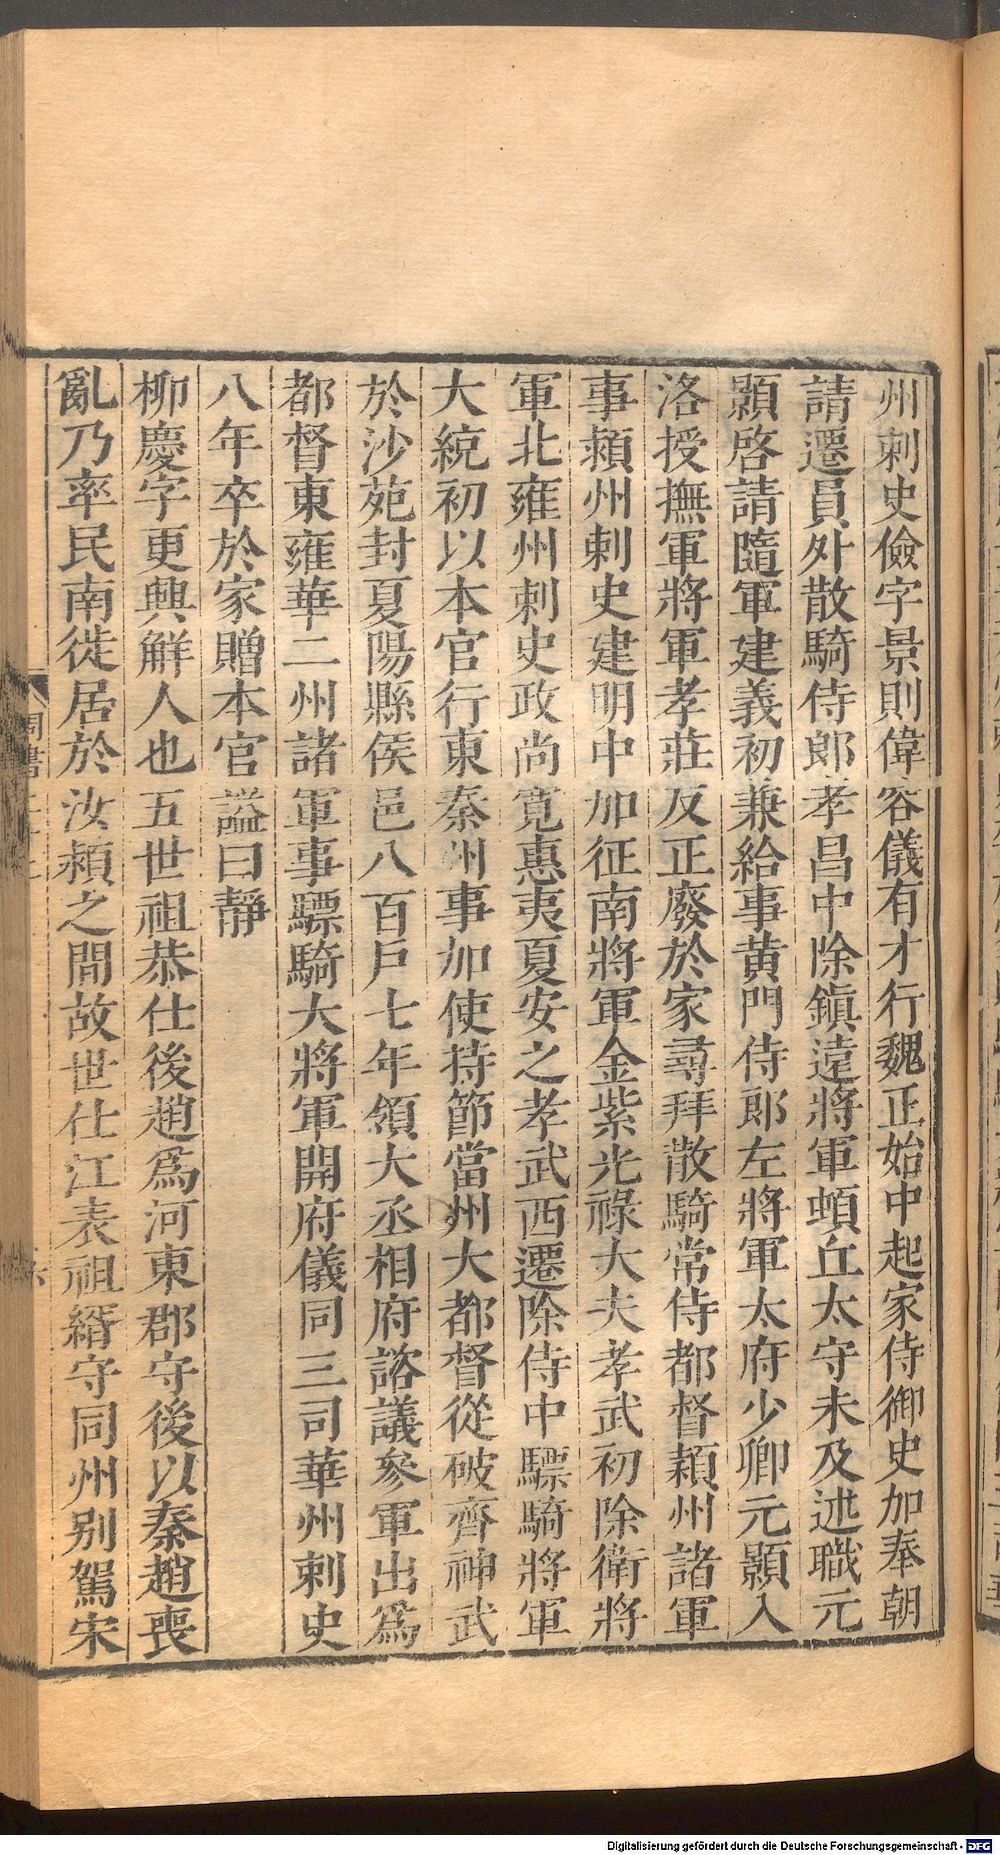 州刺史儉字景則偉容儀有才行魏正始中起家侍御史加奉朝
請遷員外散騎侍郎孝昌中除鎮遠將軍頓丘太守未及述職元
顥啓請隨軍建義初兼給事黄門侍郎左將軍太府少卿元顥入
洛授撫軍將軍孝莊反正廢於家尋拜散騎常侍都督潁州諸軍
事潁州刺史建明中加征南將軍金紫光祿大夫孝武初除衛將
軍北雍州刺史政尚寛惠夷夏安之孝武西遷除侍中驃騎將軍
大統初以本官行東秦州事加使持節當州大都督從破齊神武
於沙苑封夏陽縣侯邑八百戶七年領大丞相府諮議參軍出爲
都督東雍華二州諸軍事驃騎大將軍開府儀同三司華州刺史
八年卒於家贈本官謚曰靜
柳慶字更興解人也五世祖恭仕後趙爲河東郡守後以秦趙喪
亂乃率民南徙居於汝潁之間故世仕江表祖縃守同州别駕宋
周書
Digitalisierung gefördert durch die Deutsche Forschungsgemeinschaft - DFG